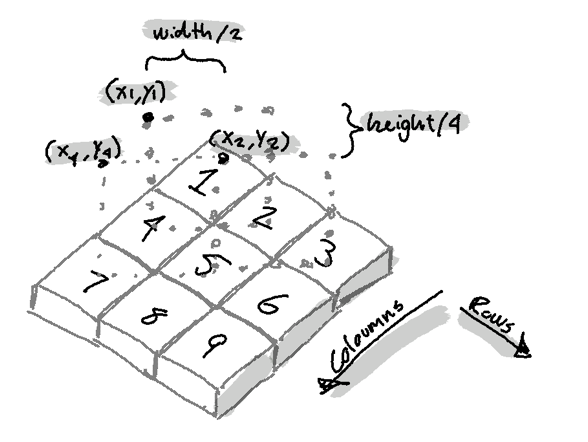 width/2
(x1,y1)
height/4
(x4,y4)
(x2,y2)
1
2
3
4
5
6
7
8
9
Coloumns
Rows